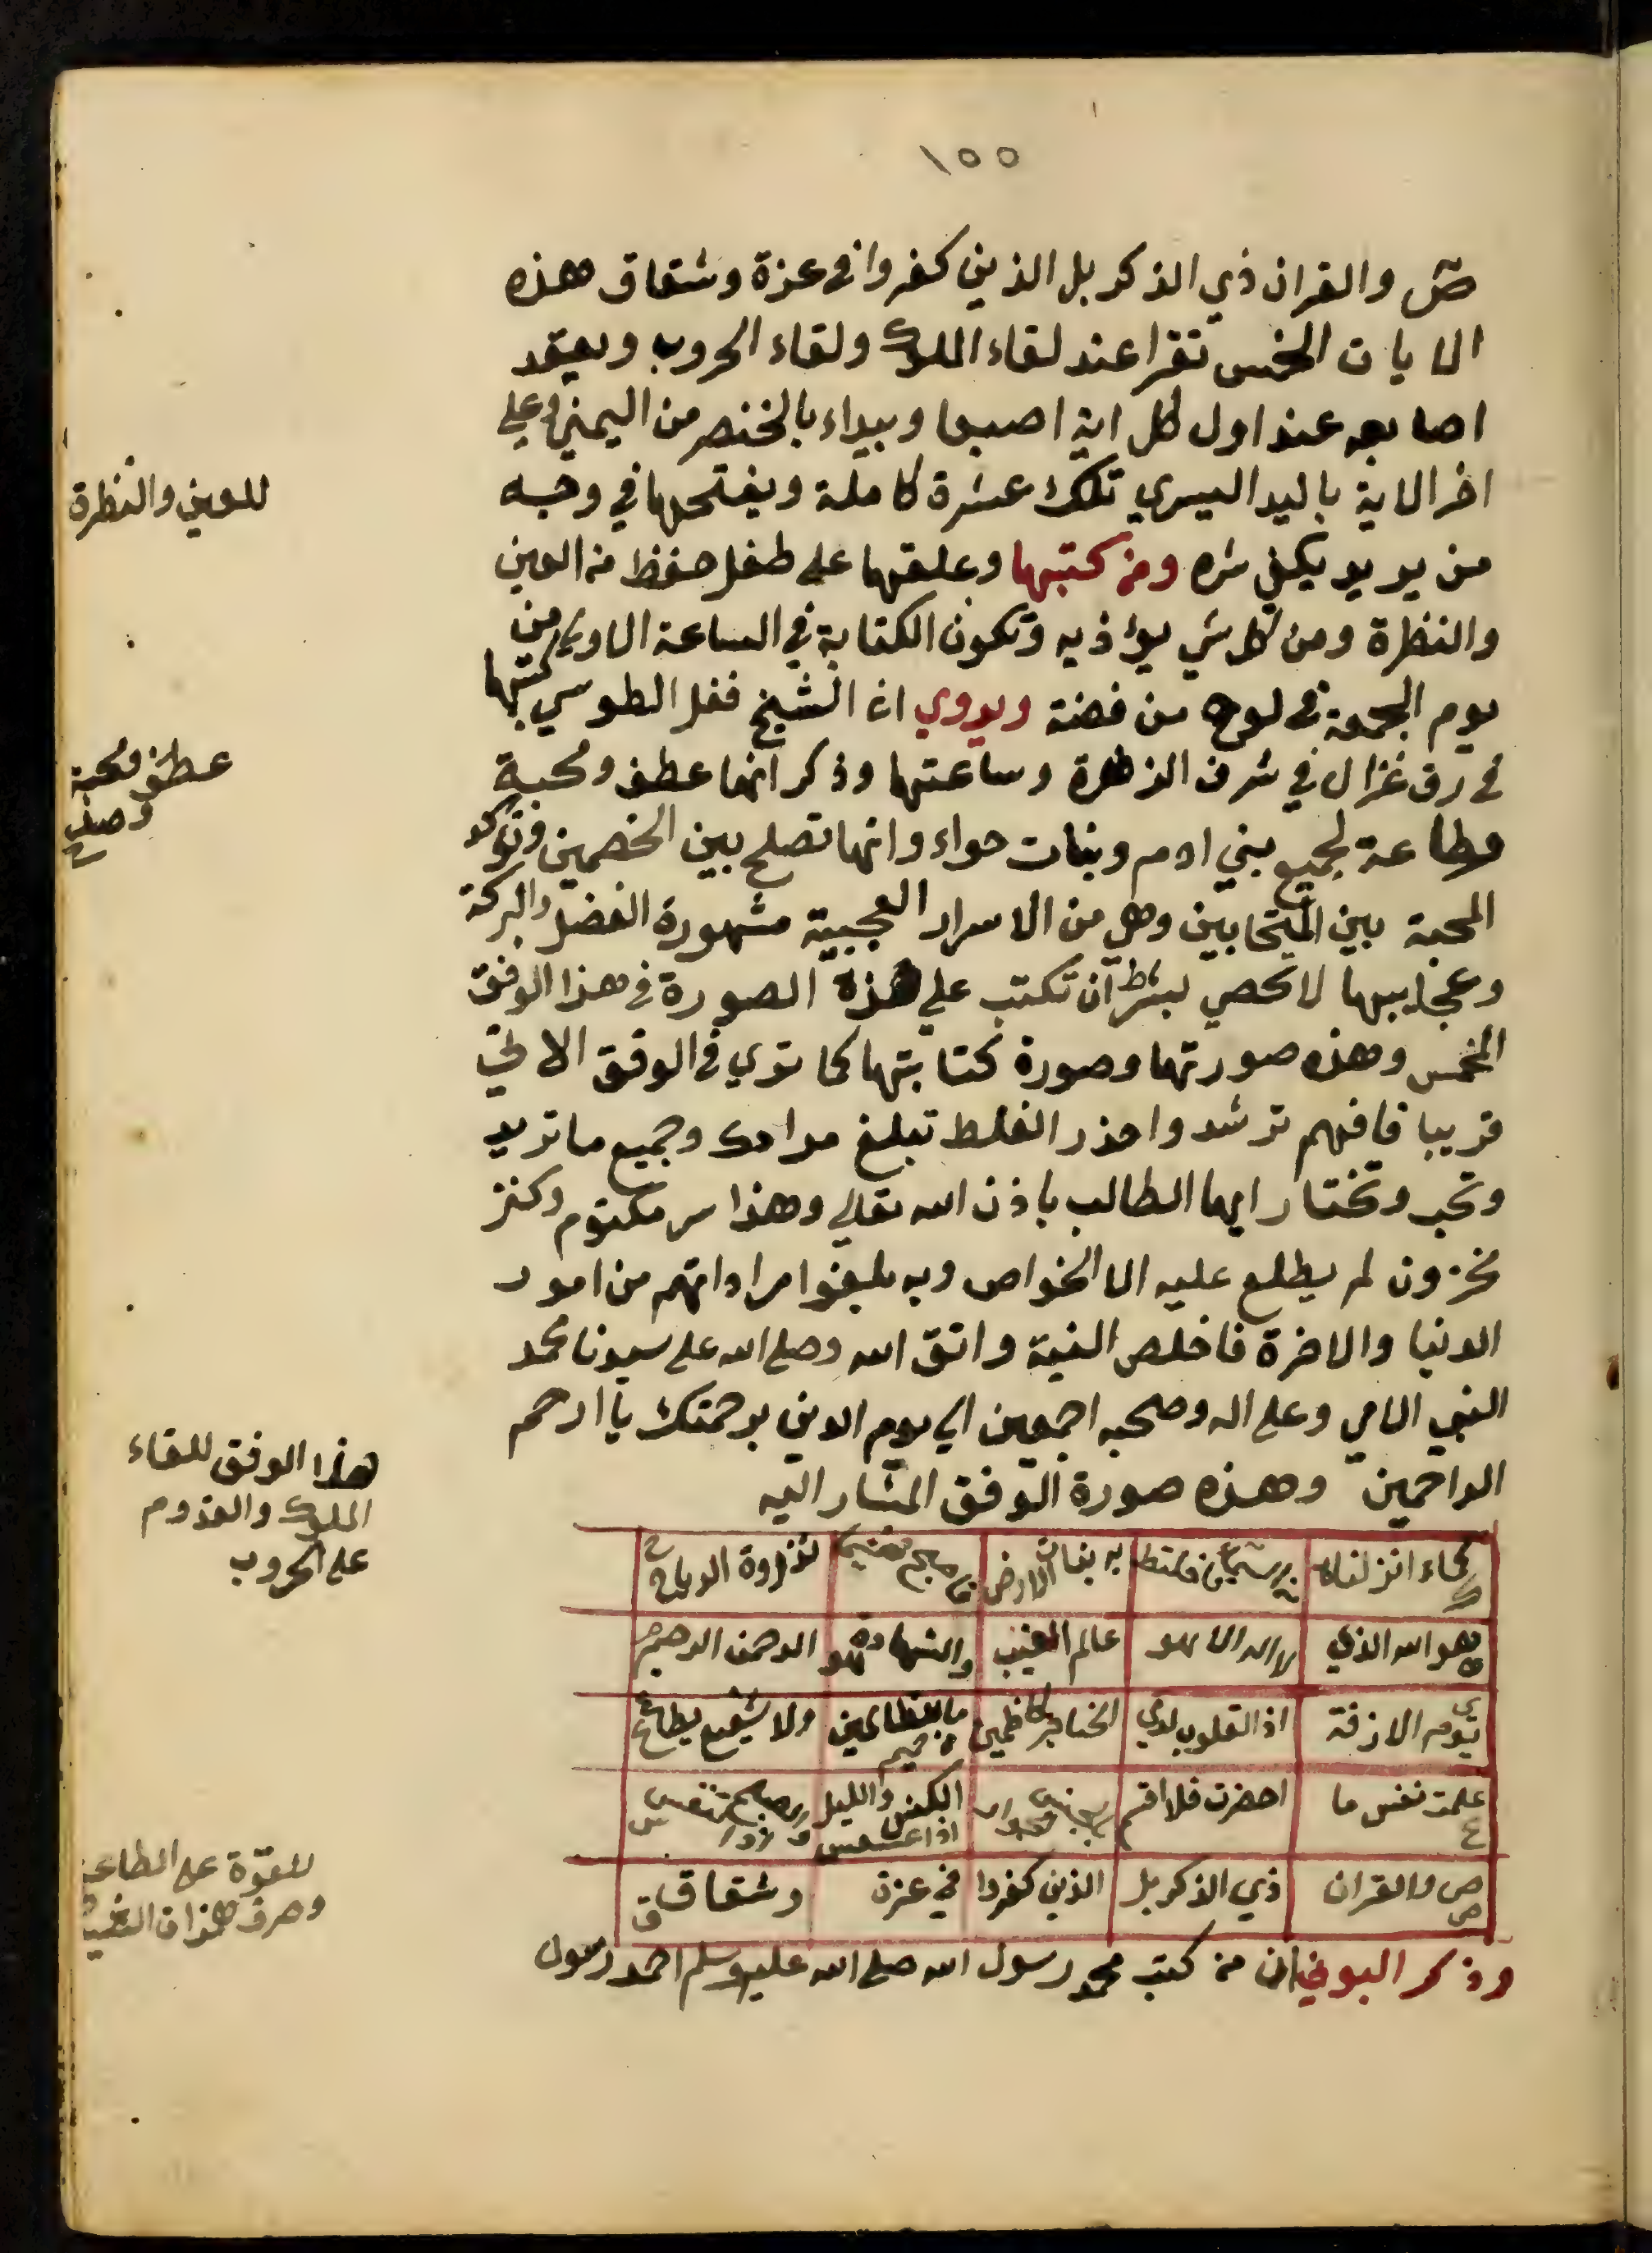 ١٥٥
ص والقران ذي الذكر بل الذين كفروا في عزة وشقاق هذه
الايات الخمس تقرا عند لقاء الملوك ولقاء الحروب ويعقد
اصابعه عند اول كل اية اصبعا ويبداء بالخنصر من اليمني وعلي
اخر الاية باليد اليسري تلك عشرة كاملة ويفتحها في وجه
من يريد يكفي شره ومن كتبها وعلقها علي طفل حفظ من العين
والنظرة ومن كل شي يوءذيه وتكون الكتابة في الساعة الاولي من
يوم الجمعة في لوح من فضة ويروي ان الشيخ الطوسي كتبها
في رق غزال في شرف الزهرة وساعتها وذكر انها عطف ومحبة
وطاعة لجميع بني ادم وبنات حواء وانها تصلح بين الخصمين وتوكد
المحبة بين المتحابين وهي من الاسرار العجيبة مشهورة الفضل والبركة
وعجايبها لا تحصي بشرط ان تكتب علي هذه الصورة في هذا الوفق
المخمس وهذه صورتها وصورة كتابتها كما تري في الوفق الاتي
قريبا فافهم ترشد واحذر الغلط تبلغ مرادك وجميع ما تريد
وتحب وتختار ايها الطالب باذن الله تعالي وهذا سر مكتوم وكنز
مخزون لم يطلع عليه الا الخواص وبه بلغوا مراداتهم من امور
الدنيا والاخرة فاخلص النية واتق الله وصلي الله علي سيدنا محمد
النبي الامي وعلي اله وصحبه اجمعين الي يوم الدين برحمتك يا ارحم
الراحمين وهذه صورة الوفق المشار اليه
كماء انزلناه من السماء فاختلط به نبات الارض فاصبح هشيما تذروه الرياح
هو الله الذي لا اله الا هو عالم الغيب والشهادة هو الرحمن الرحيم
يوم الازفة اذ القلوب لدي الحناجر كاظمين ما للظالمين من حميم ولا شفيع يطاع
علمت نفس ما احضرت فلا اقسم بالخنس الجوار الكنس والليل اذا عسعس والصبح اذا تنفس
ص والقران ذي الذكر بل الذين كفروا في عزة وشقاق
وذكر البوني ان من كتب محمد رسول الله صلي الله عليه وسلم احمد رسول
للعين والنظرة
عطف ومحبة
وصلح
هذا الوفق للقاء
الملوك والقدوم
علي الحروب
للقوة علي الطاعة
وصرف همزات